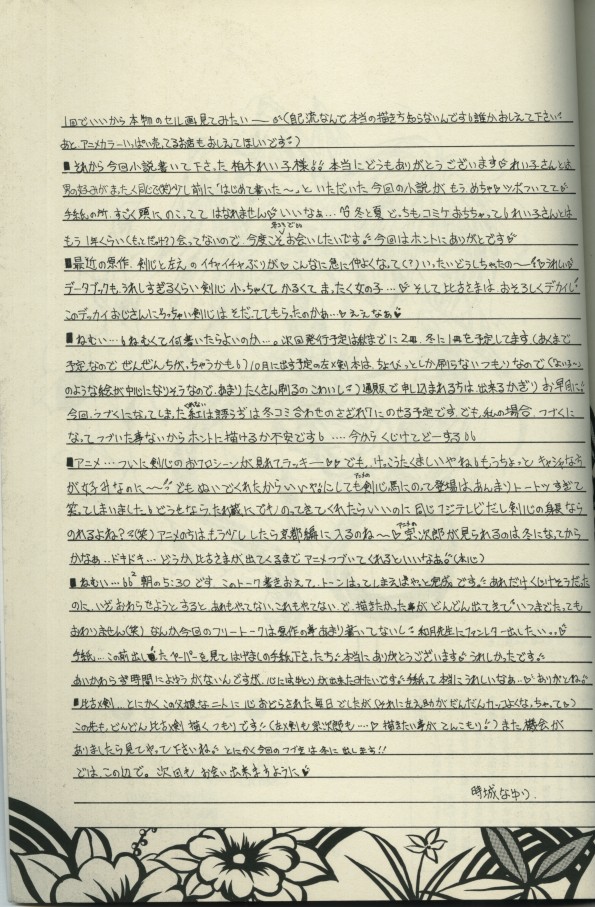 1回でいいから本物のセル画見てみたい――(自己流なんで本当の描き方知らないんです誰かおしえて下さい
あと、アニメカラーいっぱい売ってるお店もおしえてほしいです)
■それから今回小説書いて下さった柏木れい子様!! 本当にどうもありがとうございます れい子さんとは
男の好みがまったく同じで(笑)少し前に「はじめて書いた～」といただいた今回の小説がもうめちゃツボついてて
手紙の所、すごく頭にのこってて はなれません いいなぁ…冬と夏どっちもコミケおちちゃって れい子さんとは
もう1年くらい(もっとだっけ?)会ってないので、今度こそお会いしたいです 今回はホントにありがとです
■最近の原作、剣心と左えのイチャイチャぶりが こんなに急に仲よくなって(?)いったいどうしちゃったの～ うれしい
データブックも、うれしすぎるくらい剣心小っちゃくてかるくて まったく女の子…そして比古さまは おそろしくデカイし
このデッカイおじさんにちっちゃい剣心は そだててもらったのかぁ…ええなぁ
■ねむい…ねむくて何書いたらよいのか…。次回発行予定は秋までに2冊、冬に1冊を予定してます(あくまで
予定なので ぜんぜんちがっちゃうかも)10月に出す予定の左×剣本は、ちょびっとしか刷らないつもりなので(ないよ～)
のような絵が中心になりそうなので、あまりたくさん刷るのこわいし)通販で申し込まれる方は 出来るかぎりお早目に
今回、つづくになってしまった紅は誘うぎは冬コミ合わせのさざれ7にのせる予定です でも、私の場合、つづくに
なって つづいた事ないから ホントに描けるか不安です …今からくじけてどーする
■アニメ…ついに剣心のおフロシーンが見れてラッキー でも、けっこうたくましいやね もうちょっと キャシャな方
が女子みなのに～ でもぬいでくれたからいいや にしてもアニメの剣心馬にのって登場は、あんまりトートツすぎて
笑ってしまいました どうせならあばれ蔵にでものってきてくれたらいいのに 同じフジテレビだし 剣心の身長なら
のれるよね?(笑)アニメの方はもう少ししたら京都編に入るのね～ アニメの宗次郎が見られるのは、冬になってから
かなぁ…ドキドキ… どうか、比古さまが出てくるまで アニメつづいてくれるといいなぁ(本心)
■ねむい… 朝の5:30です。このトーク書きおえて、トーンはってしまえばやっと完成です あれだけくじけそうだった
のに、いざおわらせようとすると、あれもやってない、これもやってないで、描きたかった事がどんどん出てきて いつまでたっても
おわりません(笑) なんか、今回のフリートークは原作の事あまり書いてないし 和月先生にファンレター出したい…
手紙…この前出したペーパーを見て はげましの手紙下さった方 本当にありがとうございます うれしかったです
あいかわらず時間によゆうがないんですが、心にはゆとりが出来たみたいです 手紙って本当にうれしいなぁ ありがとね
■比古×剣…とにかくこの父娘な二人に 心おどらされた毎日でしたが(それに左え助がだんだんカッコよくな、ちゃって)
この先も、どんどん比古×剣描くつもりです (左×剣も宗次郎も… 描きたい事がてんこもり)また機会が
ありましたら見てやって下さいね とにかく今回のつづきは冬に出します!!
では、この辺で。次回もお会い出来ますように
時城なゆり